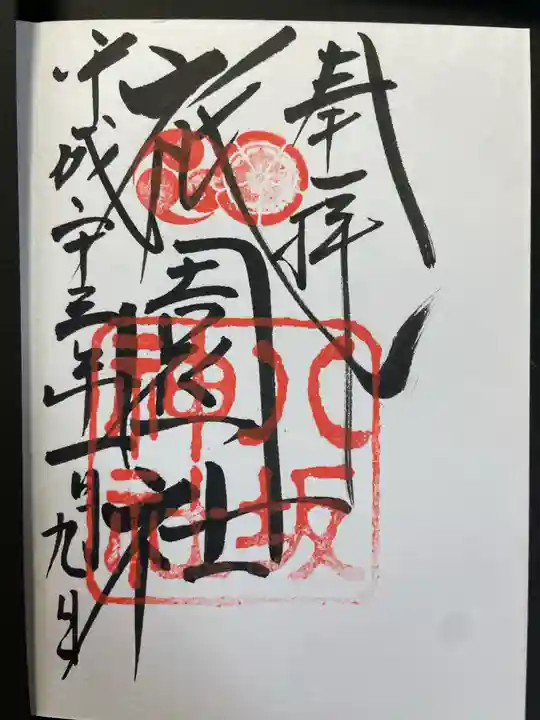 奉拝
祇園社
八坂
神社
平成廿三年一月九日